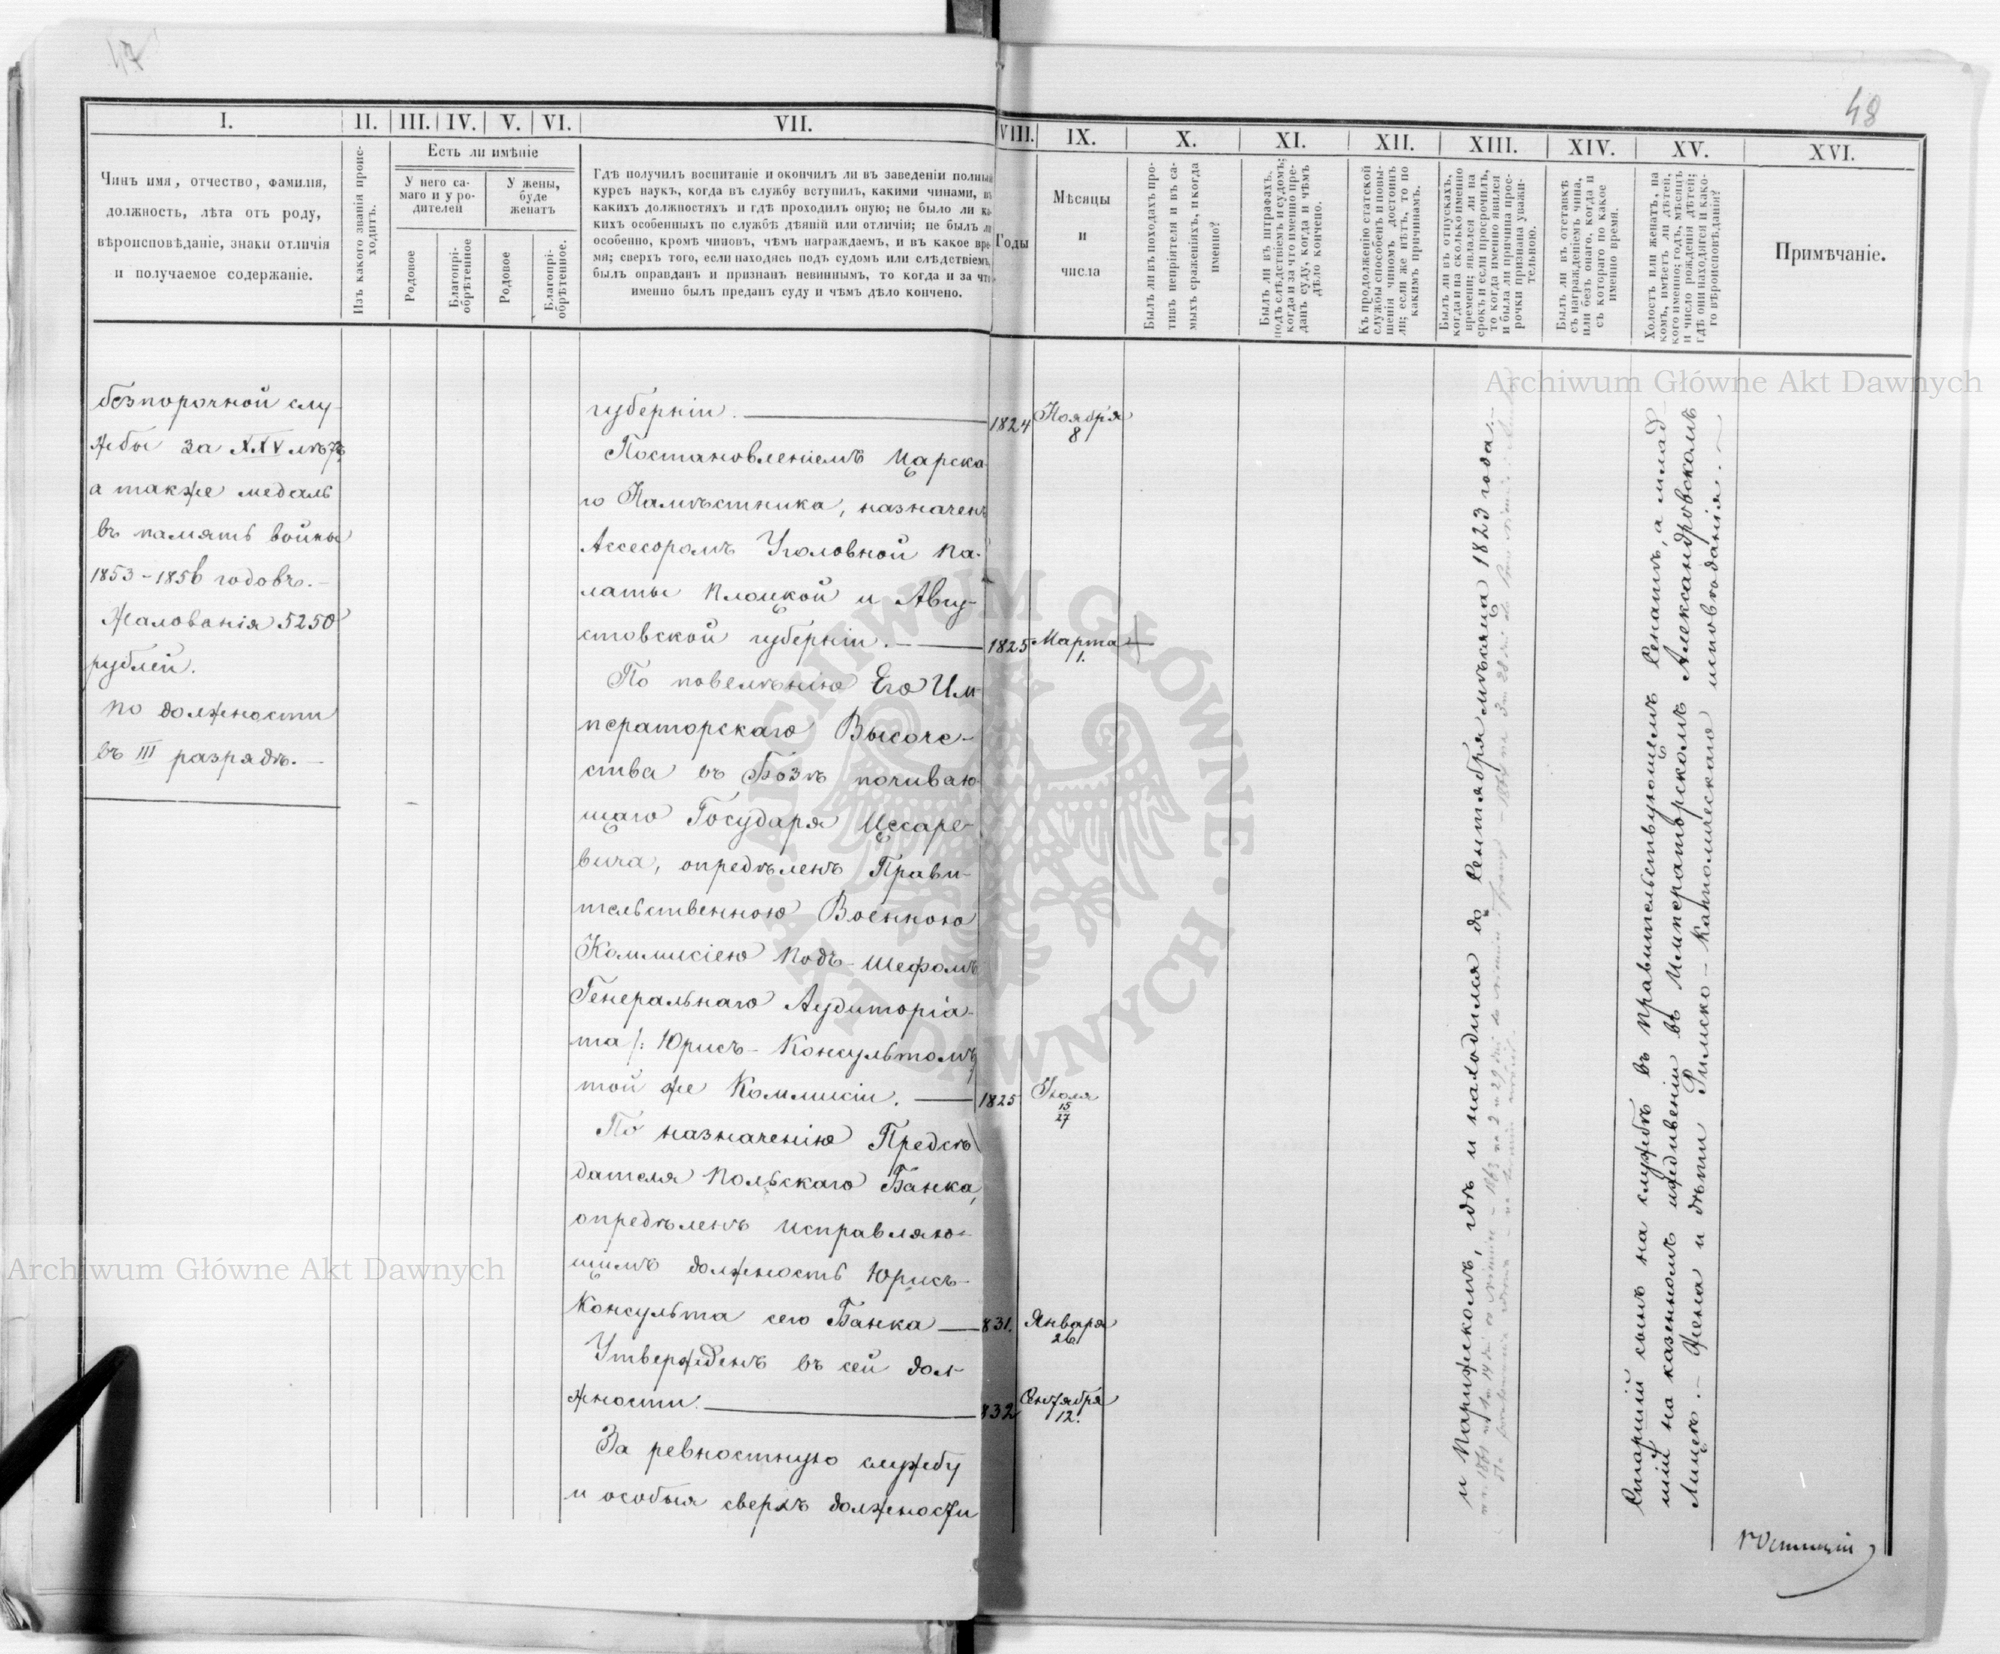 47
48
I.
II.
III.
IV.
V.
VI.
VII.
VIII.
IX.
X.
XI.
XII.
XIII.
XIV.
XV.
XVI.
Чинъ имя, отчество, фамилія,
должность, лѣта отъ роду,
вѣроисповѣданіе, знаки отличія
и получаемое содержаніе.
Изъ какого званія проис-
ходитъ.
Есть ли имѣніе
У него са-
маго и у ро-
дителей
У жены,
буде
женатъ
Родовое
Благопрі-
обрѣтенное
Родовое
Благопрі-
обрѣтенное.
Гдѣ получилъ воспитаніе и окончилъ ли въ заведеніи полный
курсъ наукъ, когда въ службу вступилъ, какими чинами, въ
какихъ должностяхъ и гдѣ проходилъ оную; не было ли ка-
кихъ особенныхъ по службѣ дѣяній или отличій; не былъ ли
особенно, кромѣ чиновъ, чѣмъ награждаемъ, и въ какое вре-
мя; сверхъ того, если находясь подъ судомъ или слѣдствіемъ,
былъ оправданъ и признанъ невиннымъ, то когда и за что
именно былъ преданъ суду и чѣмъ дѣло кончено.
Годы
Мѣсяцы
и
числа
Былъ ли въ походахъ про-
тивъ непріятеля и въ са-
мыхъ сраженіяхъ, и когда
именно?
Былъ ли въ штрафахъ,
подъ слѣдствіемъ и судомъ;
когда и за что именно пре-
данъ суду, когда и чѣмъ
дѣло кончено.
Къ продолженію статской
службы способенъ и повы-
шенія чиномъ достоинъ
ли; если же нѣтъ, то по
какимъ причинамъ.
Былъ ли въ отпускахъ,
когда и на сколько именно
времени; являлся ли на
срокъ и если просрочилъ,
то когда именно явился
и была ли причина прос-
рочки признана уважи-
тельною.
Былъ ли въ отставкѣ
съ награжденіемъ чина,
или безъ онаго, когда и
съ котораго по какое
именно время.
Холостъ или женатъ, на
комъ, имѣетъ ли дѣтей,
кого именно; годъ, мѣсяцъ
и число рожденія дѣтей;
гдѣ они находятся и како-
го вѣроисповѣданія?
Примѣчаніе.
безпорочной слу-
жбы за XXV лѣтъ,
а также медаль
въ память войны
1853-1856 годовъ.
Жалованія 5250
рублей.
по должности
въ III разрядѣ.
губерніи. 1824 Ноября 8
Постановленіемъ Царска-
го Намѣстника, назначенъ
Ассесоромъ Уголовной Па-
латы Плоцкой и Авгу-
стовской губерніи. 1825 Марта 1.
По повелѣнію Его Им-
ператорскаго Высоче-
ства въ Бозѣ почиваю-
щаго Государя Цесаре-
вича, опредѣленъ Прави-
тельственною Военною
Коммисіею Подъ-Шефомъ
Генеральнаго Аудиторіа-
та /: Юрисъ-Консультомъ
той же Коммисіи. 1825 Іюля 15/27
По назначенію Предсѣ-
дателя Польскаго Банка,
опредѣленъ исправляю-
щимъ должность Юрисъ-
Консульта сего Банка 831. Января 26
Утвержденъ въ сей дол-
жности. 832 Октября 12.
За ревностную службу
и особыя сверхъ должности
и Парижскомъ, гдѣ и находился до Сентября мѣсяца 1823 года.
Старшій сынъ на службѣ въ Правительствующемъ Сенатѣ, а млад-
шій на казенномъ иждивеніи въ Императорскомъ Александровскомъ
Лицеѣ. Жена и дѣти Римско-Католическаго исповѣданія.
Archiwum Główne Akt Dawnych
Archiwum Główne Akt Dawnych
ARCHIWUM GŁÓWNE · AKT DAWNYCH ·